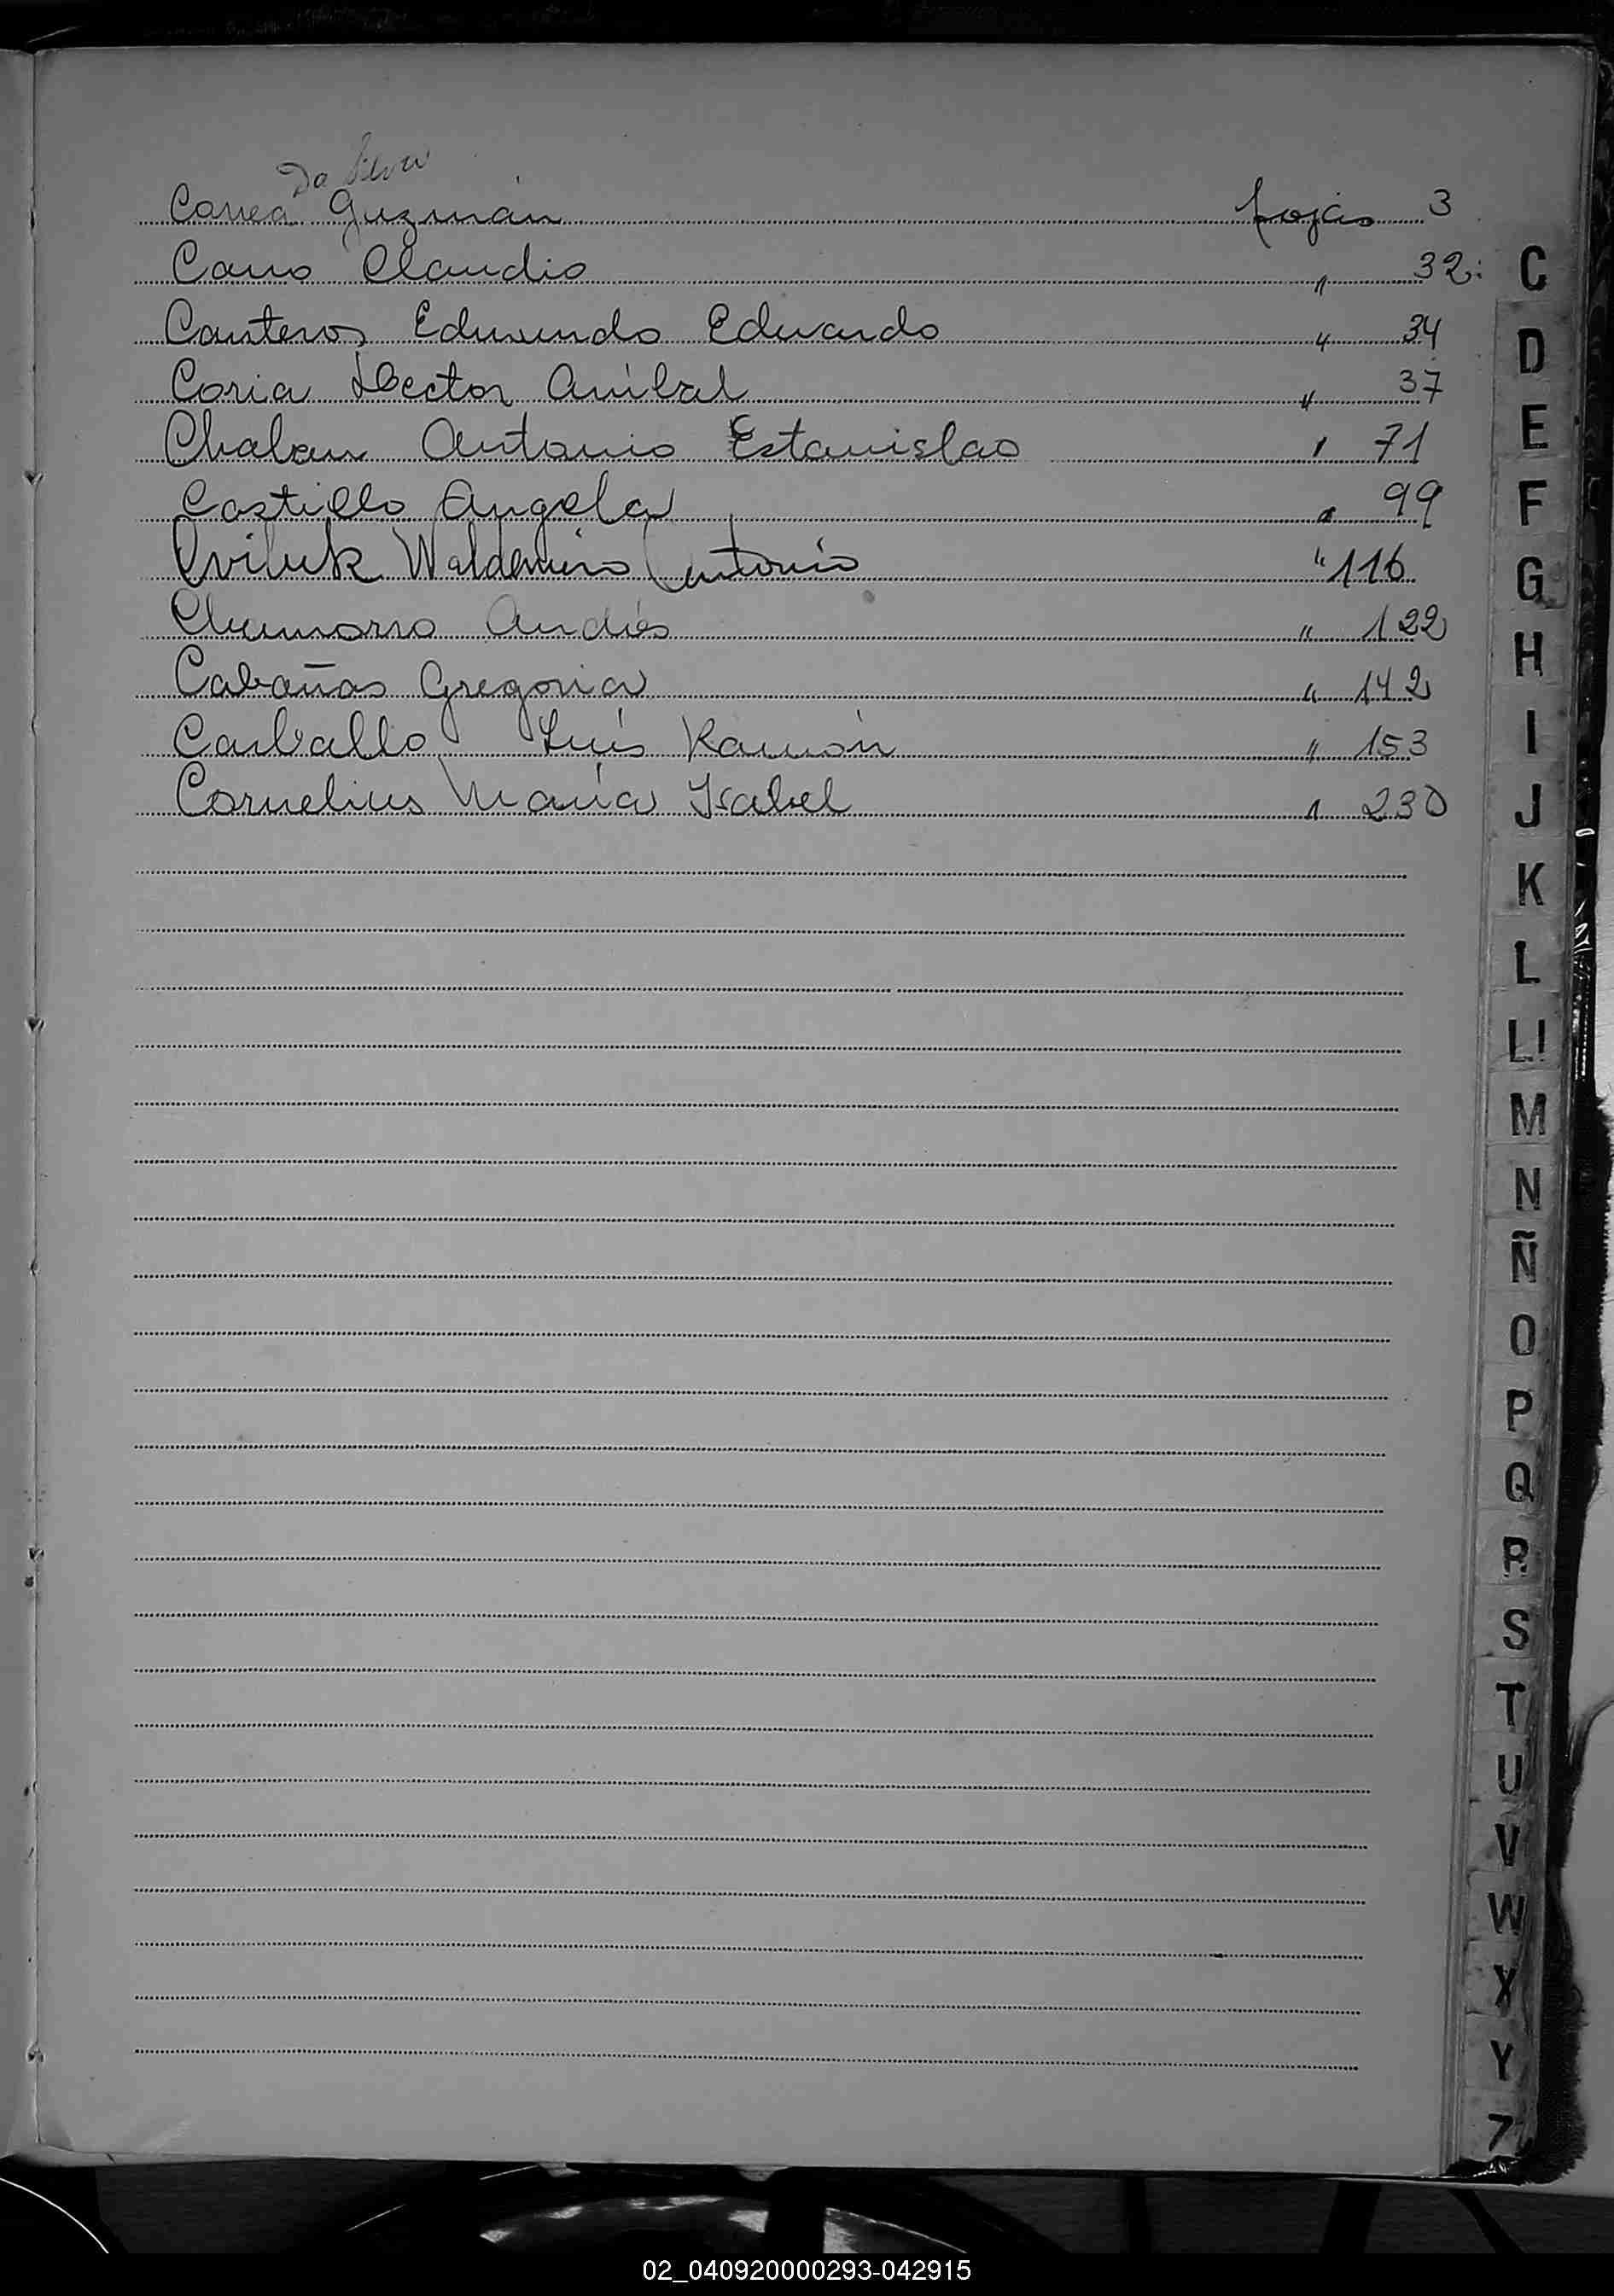 Da Silva
Correa Guzmán fojas 3
Cano Claudio " 32
Canteros Edmundo Eduardo " 34
Coria Hector Anibal " 37
Chalan Antonio Estanislao " 71
Castillo Angela " 99
Cviluk Waldemiro Antonio " 116
Chamorro Andrés " 122
Cabañas Gregoria " 142
Carballo Luís Ramón " 153
Cornelius María Isabel " 230
C
D
E
F
G
H
I
J
K
L
Ll
M
N
Ñ
O
P
Q
R
S
T
U
V
W
X
Y
Z
02_040920000293-042915